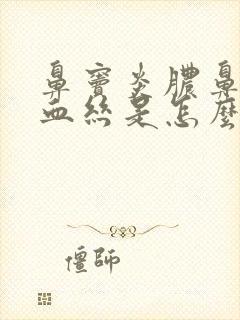 鼻窦炎膿鼻
血絲是怎麼
僵師